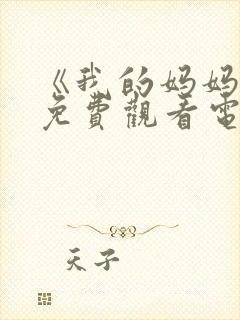 《我的妈妈
免費觀看電
天子